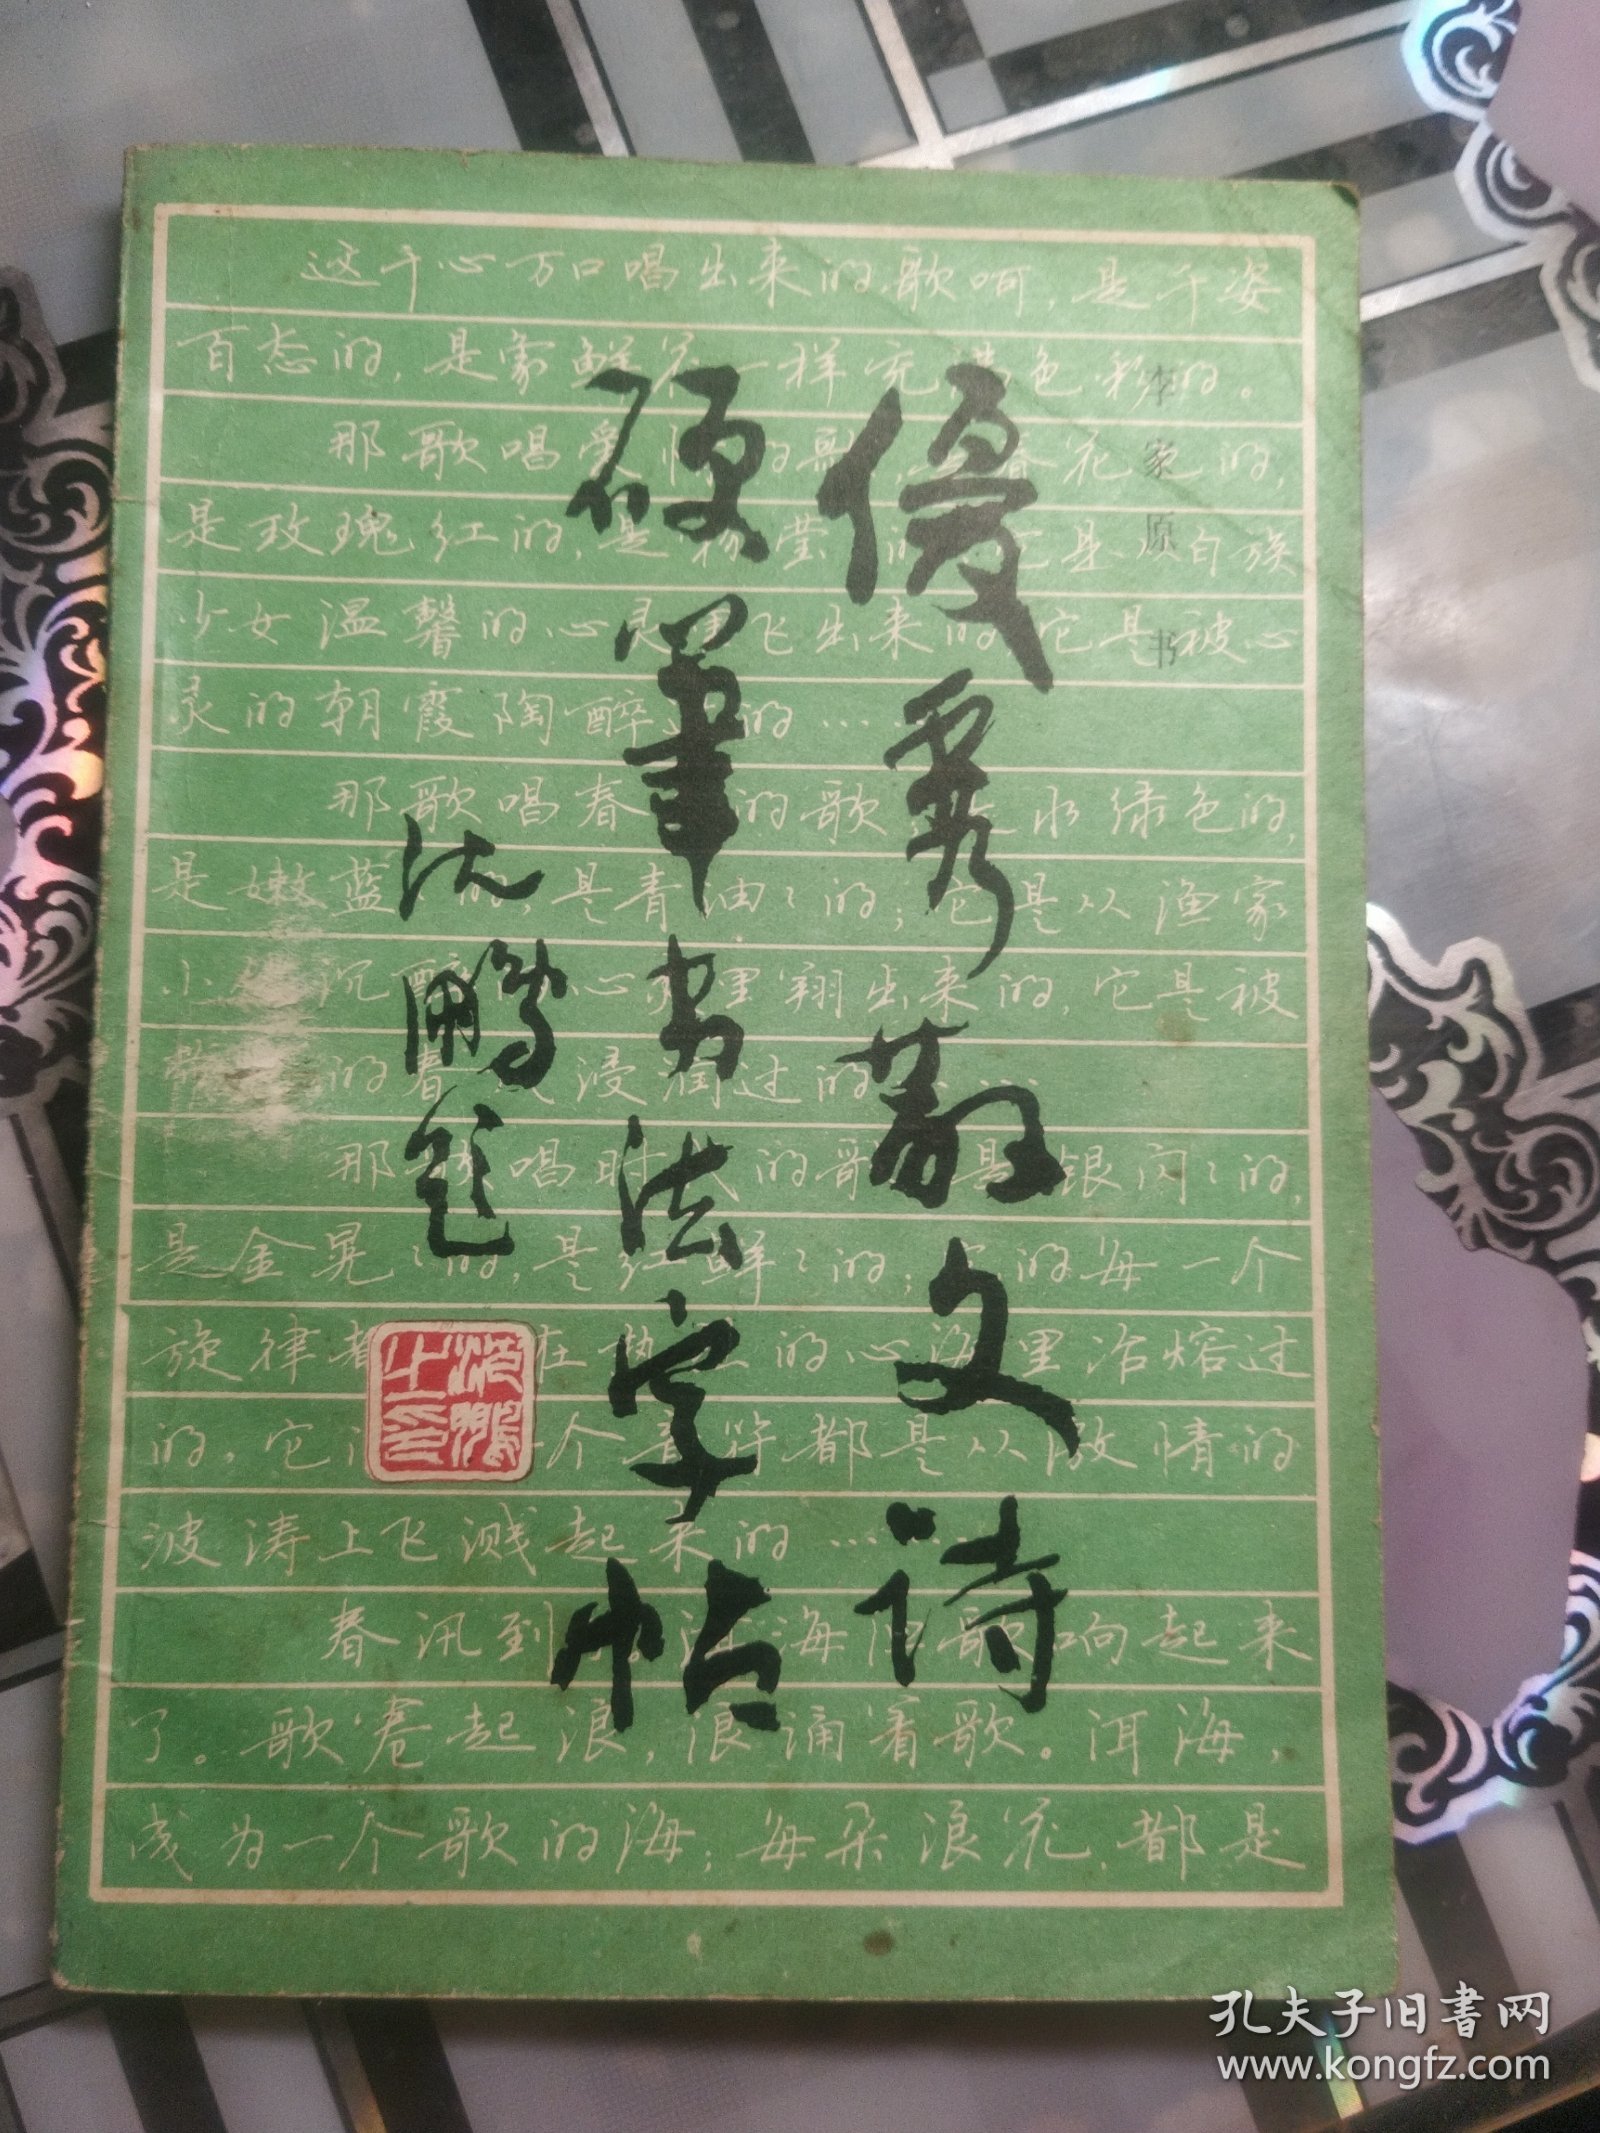 优秀散文诗
硬筆书法字帖
沈鹏题
李家原书
沈鹏之印
这千心万口唱出来的歌呵，是千姿
百态的，是象鲜花一样充满色彩的。
那歌唱爱情的歌，春花色的，
是玫瑰红的，是 莹 的 它是 白族
少女温馨的心灵里飞出来的，它是被心
灵的朝霞陶醉 的……
那歌唱春 的歌， 水绿色的，
是嫩蓝 的，是青油々的；它是从渔家
小 沉醉 心灵里翔出来的，它是被
的春 浸润过的……
那歌唱时代的歌，是银闪々的，
是金晃々的，是红鲜々的；它的每一个
旋律都 在热 的心海里冶熔过
的，它 个音符都是从激情的
波涛上飞溅起来的……
春汛到 洱海 歌响起来
了。歌卷起浪，浪涌着歌。洱海，
成为一个歌的海；每朵浪花，都是
孔夫子旧书网
www.kongfz.com